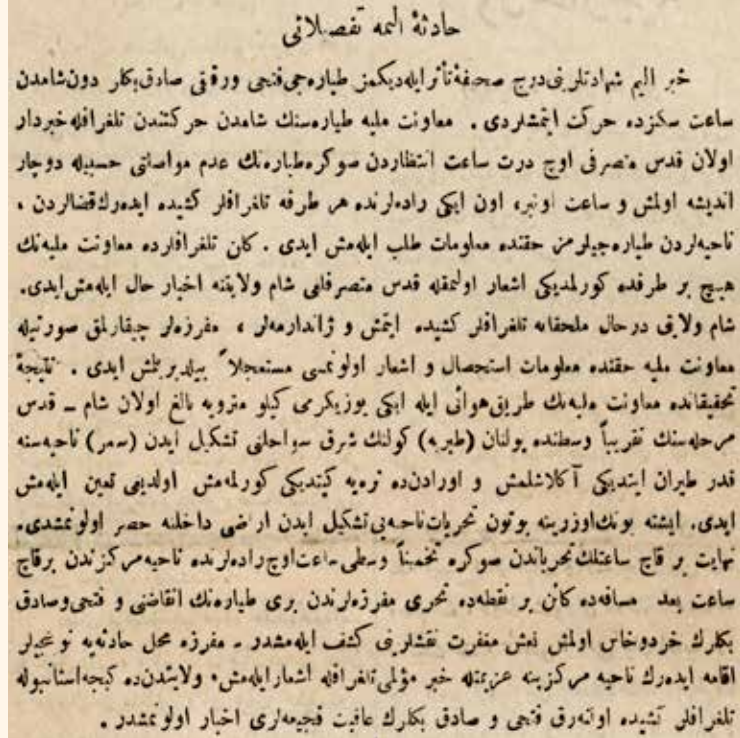 حادثهٔ الیمه تفصیلاتی
خبر الیم شهادتلرینی درج صحیفهٔ تأثر ایله‌دیکمز طیاره‌جی فتحی ورفقی صادق بکلر دون شامدن
ساعت سکزده حرکت ایتمشلردی . معاونت ملیه طیاره‌سنك شامدن حرکتندن تلغرافله خبردار
اولان قدس متصرفی اوچ درت ساعت انتظاردن صوکره طیاره‌نك عدم مواصلتی حسبیله دوچار
اندیشه اولمش و ساعت اونبر، اون ایکی راده‌لرنده هر طرفه تلغرافلر کشیده ایده‌رك قضالردن ،
ناحیه‌لردن طیاره‌جیلرمز حقنده معلومات طلب ایله‌مش ایدی . کلن تلغرافلرده معاونت ملیه‌نك
هیچ بر طرفده کورلمدیکی اشعار اولنمقله قدس متصرفلغی شام ولایتنه اخبار حال ایله‌مش ایدی.
شام ولایتی درحال ملحقاته تلغرافلر کشیده ایتمش و ژاندارمه‌لر ، مفرزه‌لر چیقارلمق صورتیله
معاونت ملیه حقنده معلومات استحصال و اشعار اولونمسی مستعجلاً بیلدیرلمش ایدی . نتیجهٔ
تحقیقاتده معاونت ملیه‌نك طریق هوائی ایله ایکی یوز یکرمی کیلو مترویه بالغ اولان شام ـ قدس
مرحله‌سنك تقریباً وسطنده بولنان (طبریه) کولنك شرق سواحلنی تشکیل ایدن (سمر) ناحیه‌سنه
قدر طیران ایتدیکی آکلاشلمش و اورادن‌ده نره‌یه کیتدیکی کورلمه‌مش اولدیغی تعین ایله‌مش
ایدی. ایشته بونك اوزرینه بوتون تحریات ناحیه‌یی تشکیل ایدن اراضی داخلنه حصر اولونمشدی.
نهایت بر قاچ ساعتلك تحریاتدن صوکره تخمیناً وسطی ساعت اوچ راده‌لرنده ناحیه مرکزندن برقاچ
ساعت بعد مسافه‌ده کائن بر نقطه‌ده تحری مفرزه‌لرندن بری طیاره‌نك انقاضنی و فتحی وصادق
بکلرك خردوخاش اولمش نعش مغفرت نقشلرینی کشف ایله‌مشدر ـ مفرزه محل حادثه‌یه نوبتجیلر
اقامه ایده‌رك ناحیه مرکزینه عزیمتله خبر مؤلمی تلغرافله اشعار ایله‌مش، ولایتدن‌ده کیجه استانبوله
تلغرافلر کشیده اولنه‌رق فتحی و صادق بکلرك عاقبت فجیعه‌لری اخبار اولونمشدر .